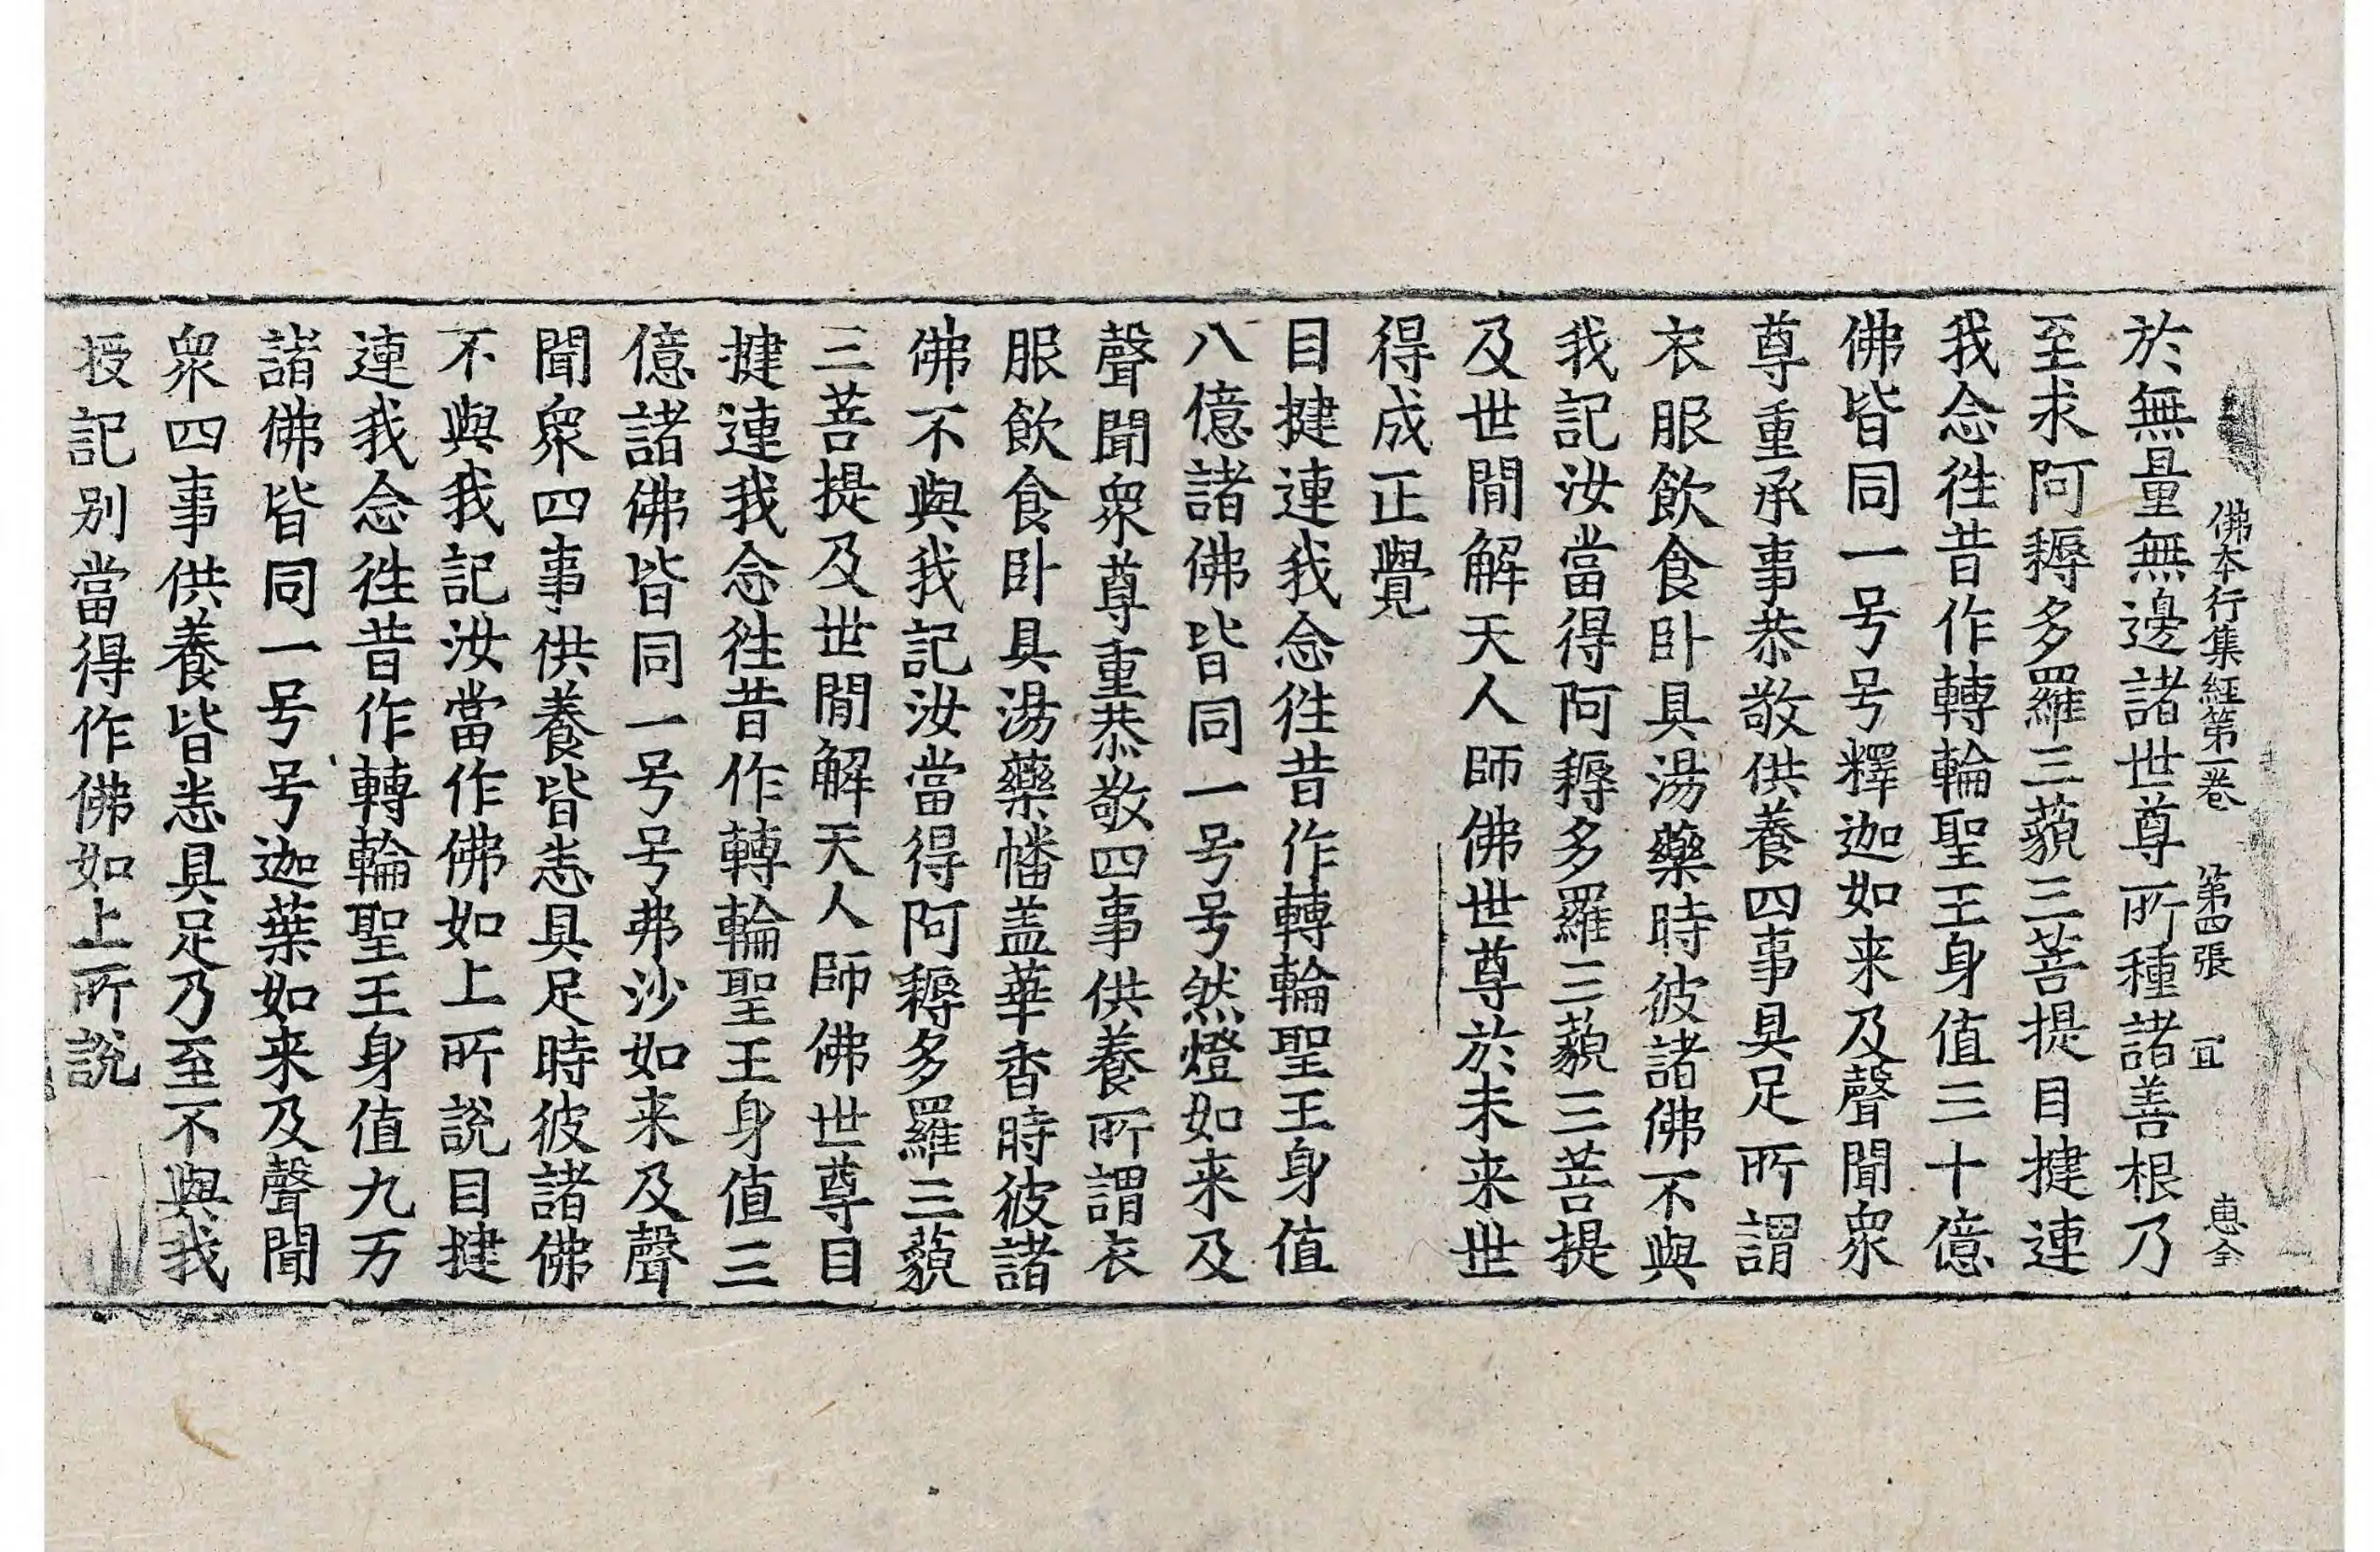 佛本行集經第一卷　第四張　冝　惠全
於無量無邊諸世尊所種諸善根乃
至求阿耨多羅三藐三菩提目揵連
我念徃昔作轉輪聖王身值三十億
佛皆同一号号釋迦如来及聲聞衆
尊重承事恭敬供養四事具足所謂
衣服飲食卧具湯藥時彼諸佛不與
我記汝當得阿耨多羅三藐三菩提
及世間解天人師佛世尊於未来世
得成正覺
目揵連我念徃昔作轉輪聖王身值
八億諸佛皆同一号号然燈如来及
聲聞衆尊重恭敬四事供養所謂衣
服飲食卧具湯藥幡盖華香時彼諸
佛不與我記汝當得阿耨多羅三藐
三菩提及世間解天人師佛世尊目
揵連我念徃昔作轉輪聖王身值三
億諸佛皆同一号号弗沙如来及聲
聞衆四事供養皆悉具足時彼諸佛
不與我記汝當作佛如上所說目揵
連我念徃昔作轉輪聖王身值九万
諸佛皆同一号号迦葉如来及聲聞
衆四事供養皆悉具足乃至不與我
授記别當得作佛如上所說